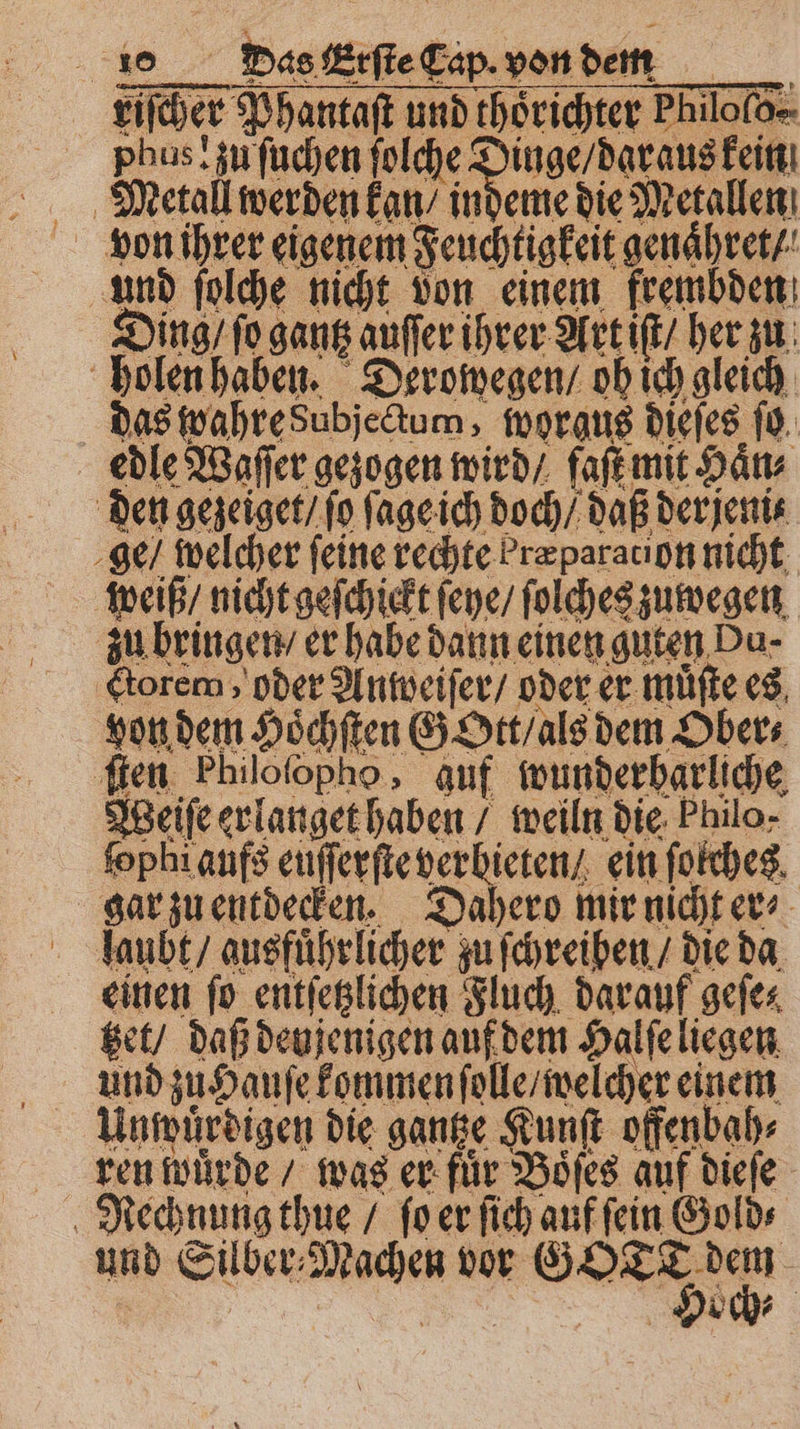 10 Das Erſte Cap. von dem
riſcher Phantaſt und thoͤrichter Philoſo-
phus! zu ſuchen ſolche Dinge/ daraus kein
Metall werden kan/ indeme die Metallen
von ihrer eigenem Feuchtigkeit genaͤhret/
und ſolche nicht von einem frembden
Ding/ ſo gantz auſſer ihrer Art iſt/ her zu
holen haben. Derowegen/ ob ich gleich
das wahre Subjectum, woraus dieſes ſo
edle Waſſer gezogen wird/ faſt mit Haͤn⸗
den gezeiget/ ſo ſage ich doch/ daß derjeni⸗
ge/ welcher ſeine rechte Præparation nicht
weiß/ nicht geſchickt ſeye/ ſolches zuwegen
zu bringen/ er habe dann einen guten Du-
ctorem, oder Anweiſer/ oder er muͤſte es
von dem Hoͤchſten GOtt/ als dem Ober⸗
ſten Philoſopho, auf wunderbarliche
Weiſe erlanget haben / weiln die Philo-
ſophi aufs euſſerſte verbieten/ ein ſolches
gar zu entdecken. Dahero mir nicht er⸗
laubt / ausfuͤhrlicher zu ſchreiben / die da
einen ſo entſetzlichen Fluch darauf geſe⸗
tzet/ daß denjenigen auf dem Halſe liegen
und zu Hauſe kommen ſolle/ welcher einem
Unwuͤrdigen die gantze Kunſt offenbah⸗
ren wuͤrde / was er fuͤr Boͤſes auf dieſe
Rechnung thue / ſo er ſich auf ſein Gold⸗
und Silber⸗Machen vor GOTT dem
Hoch⸗